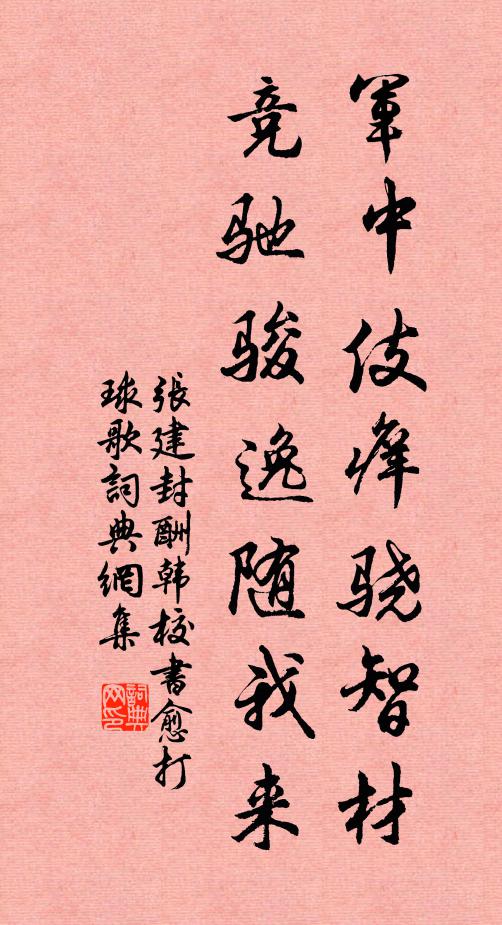 軍中伎癢骁智材
竞驰骏逸随我来
張建封酬韩校書愈打
球歌詞典網集
詞典网印